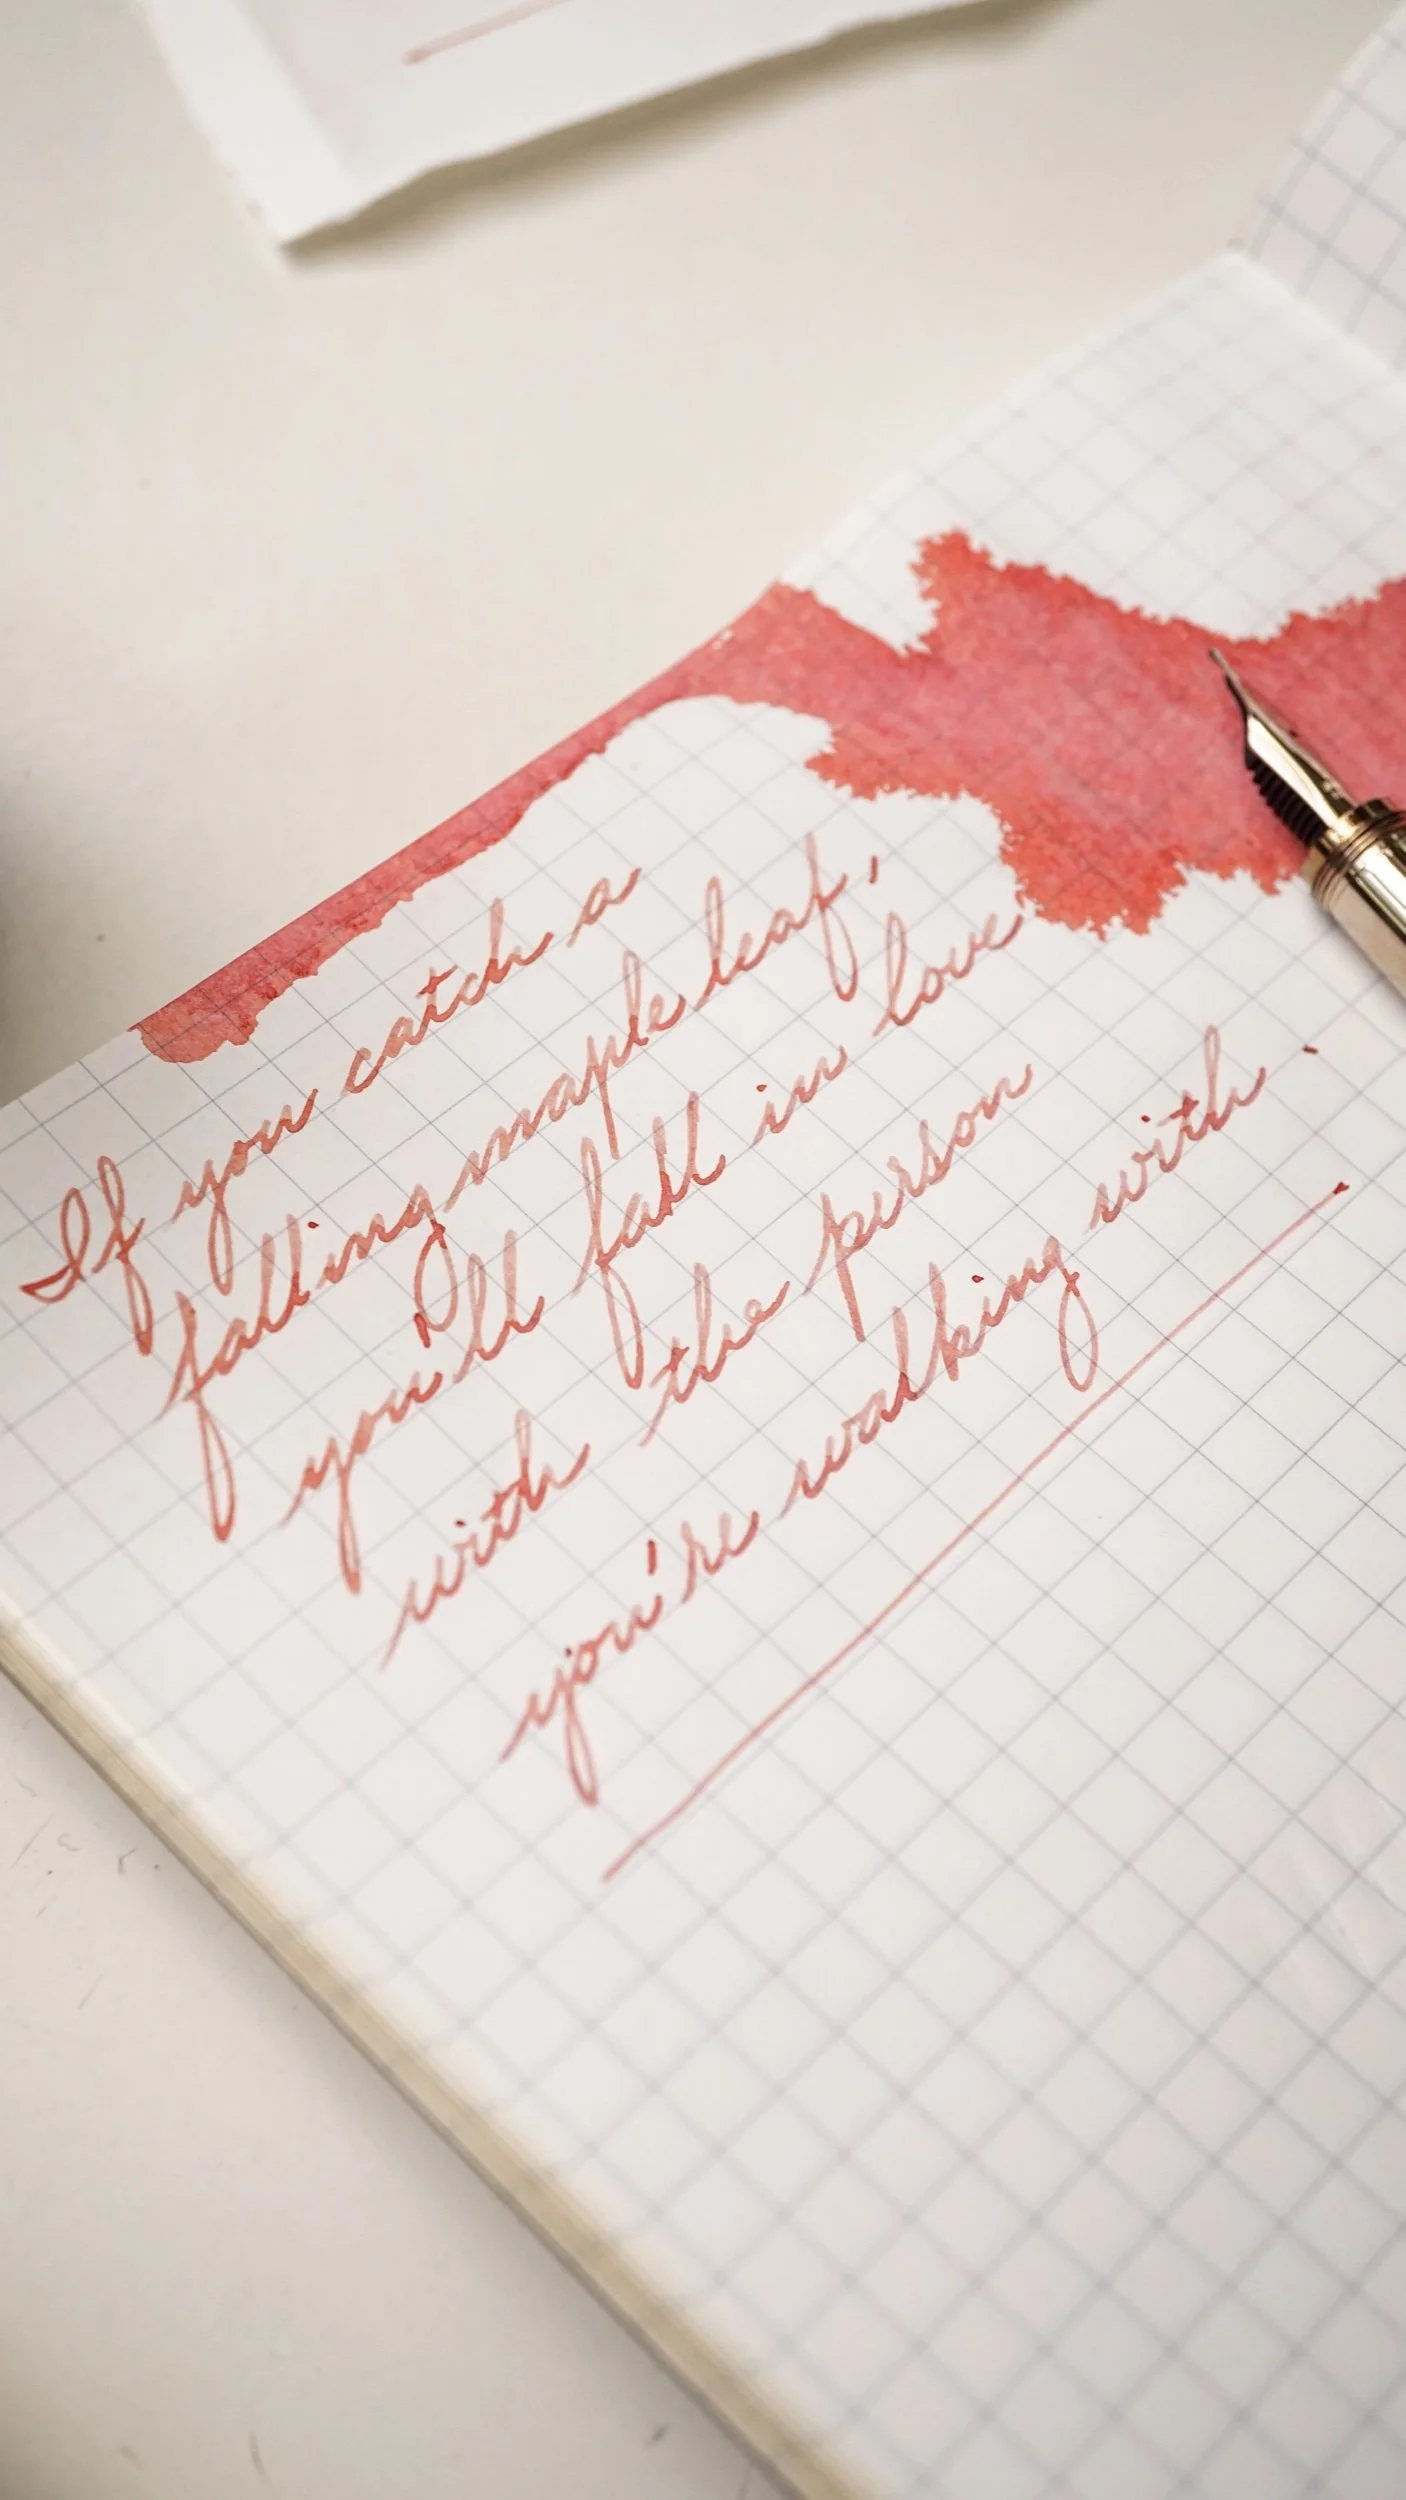 If you catch a
falling maple leaf,
you'll fall in love
with the person
you're walking with.